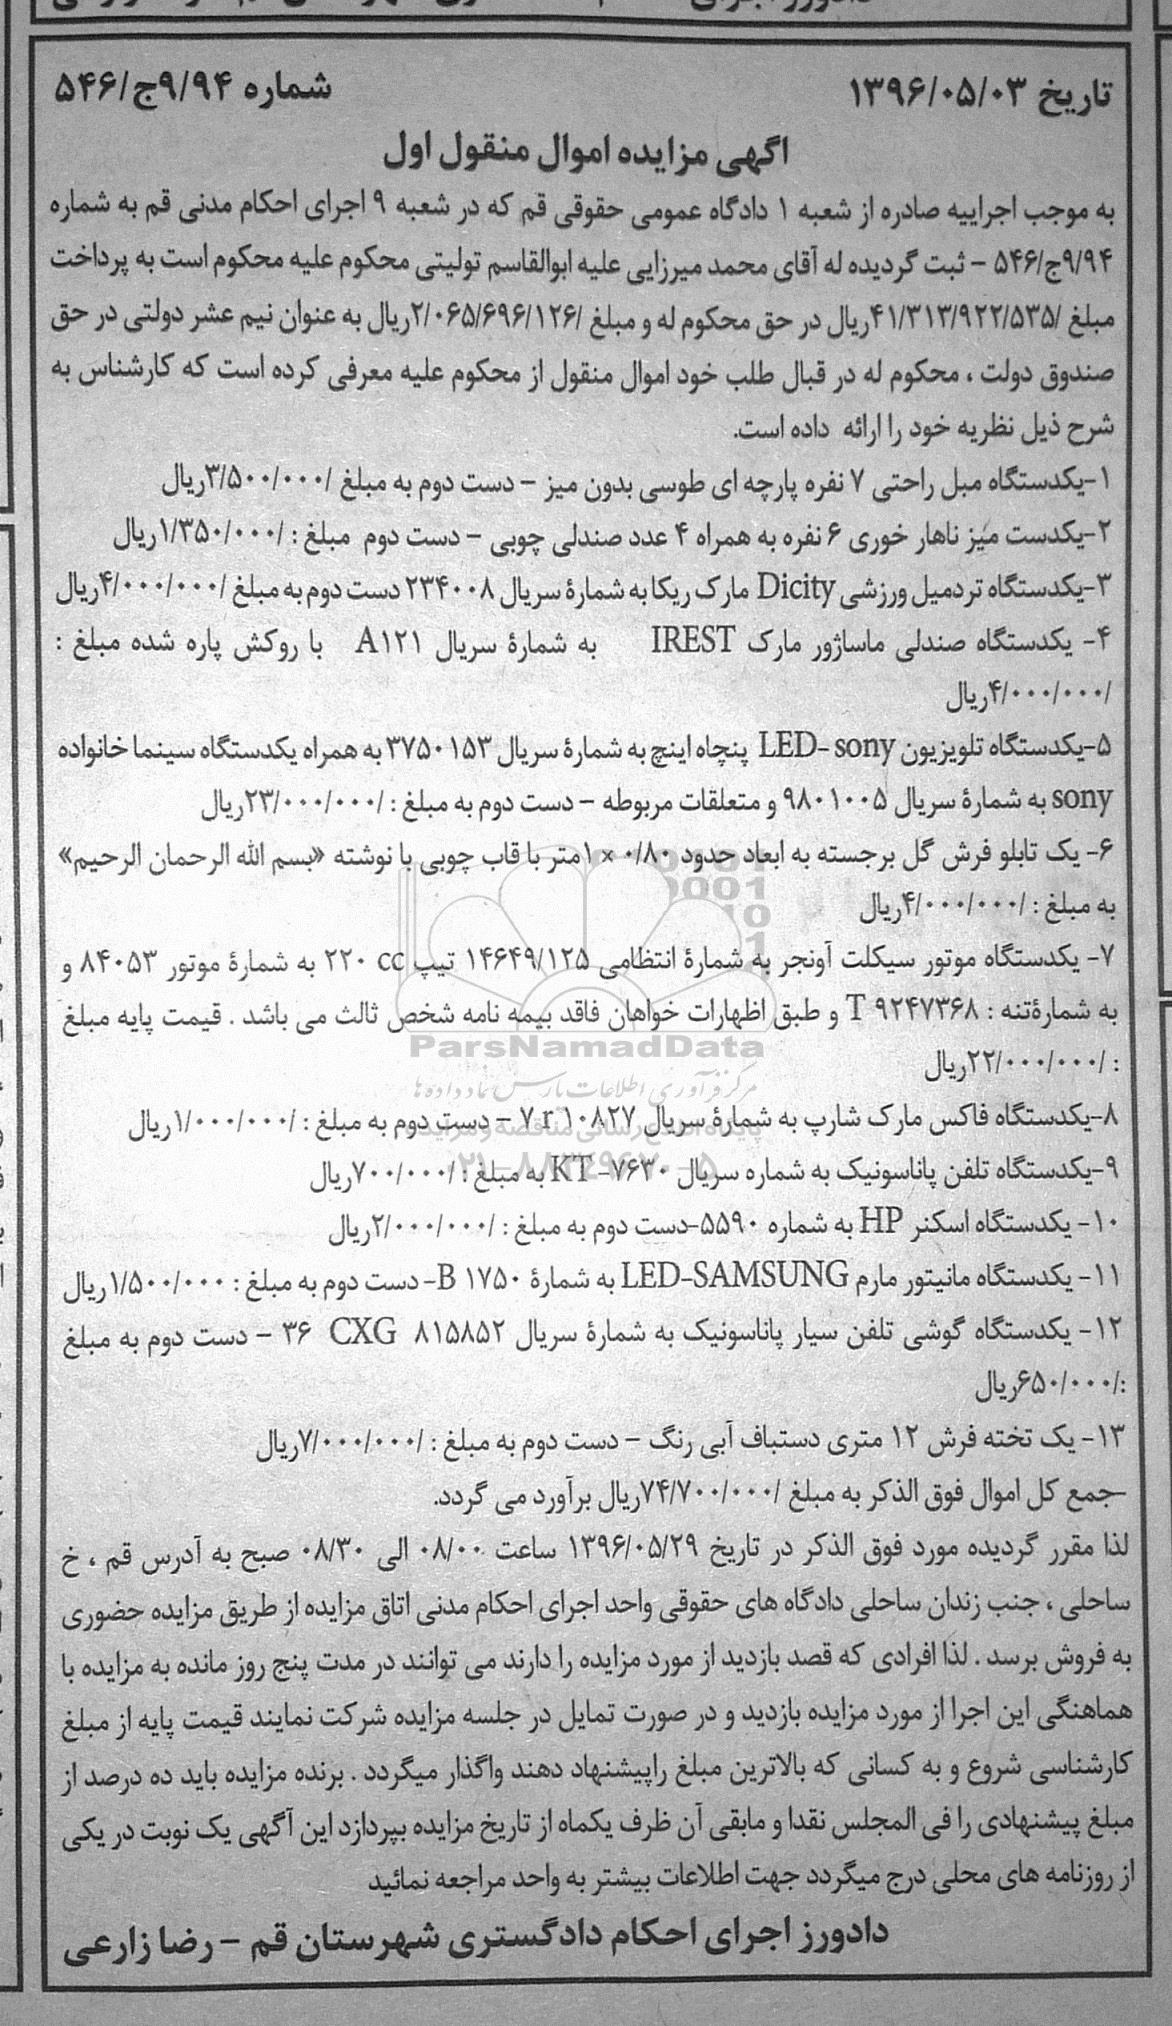 تاریخ ۱۳۹۶/۰۵/۰۳
شماره ۹/۹۴ج/۵۴۶
اگهی مزایده اموال منقول اول
به موجب اجراییه صادره از شعبه ۱ دادگاه عمومی حقوقی قم که در شعبه ۹ اجرای احکام مدنی قم به شماره
۹/۹۴ج/۵۴۶ – ثبت گردیده له آقای محمد میرزایی علیه ابوالقاسم تولیتی محکوم علیه محکوم است به پرداخت
مبلغ /۴۱/۳۱۳/۹۲۲/۵۳۵ریال در حق محکوم له و مبلغ /۲/۰۶۵/۶۹۶/۱۲۶ریال به عنوان نیم عشر دولتی در حق
صندوق دولت ، محکوم له در قبال طلب خود اموال منقول از محکوم علیه معرفی کرده است که کارشناس به
شرح ذیل نظریه خود را ارائه داده است.
۱-یکدستگاه مبل راحتی ۷ نفره پارچه ای طوسی بدون میز – دست دوم به مبلغ /۳/۵۰۰/۰۰۰ریال
۲-یکدست میز ناهار خوری ۶ نفره به همراه ۴ عدد صندلی چوبی – دست دوم مبلغ : /۱/۳۵۰/۰۰۰ریال
۳-یکدستگاه تردمیل ورزشی Dicity مارک ریکا به شمارۀ سریال ۲۳۴۰۰۸ دست دوم به مبلغ /۴/۰۰۰/۰۰۰ریال
۴- یکدستگاه صندلی ماساژور مارک IREST به شمارۀ سریال A۱۲۱ با روکش پاره شده مبلغ :
/۴/۰۰۰/۰۰۰ریال
۵-یکدستگاه تلویزیون LED- sony پنچاه اینچ به شمارۀ سریال ۳۷۵۰۱۵۳ به همراه یکدستگاه سینما خانواده
sony به شمارۀ سریال ۹۸۰۱۰۰۵ و متعلقات مربوطه – دست دوم به مبلغ : /۲۳/۰۰۰/۰۰۰ریال
۶- یک تابلو فرش گل برجسته به ابعاد حدود ۰/۸۰ × ۱متر با قاب چوبی با نوشته «بسم الله الرحمان الرحیم»
به مبلغ : /۴/۰۰۰/۰۰۰ریال
۷- یکدستگاه موتور سیکلت آونجر به شمارۀ انتظامی ۱۴۶۴۹/۱۲۵ تیپ ۲۲۰ cc به شمارۀ موتور ۸۴۰۵۳ و
به شمارۀتنه : T ۹۲۴۷۳۶۸ و طبق اظهارات خواهان فاقد بیمه نامه شخص ثالث می باشد . قیمت پایه مبلغ
: /۲۲/۰۰۰/۰۰۰ریال
ParsNamadData
مرکز فرآوری اطلاعات پارس نماد داده ها
۸-یکدستگاه فاکس مارک شارپ به شمارۀ سریال ۷ r ۱۰۸۲۷ – دست دوم به مبلغ : /۱/۰۰۰/۰۰۰ریال
۹-یکدستگاه تلفن پاناسونیک به شماره سریال KT -۷۶۳۰ به مبلغ : /۷۰۰/۰۰۰ریال
۱۰- یکدستگاه اسکنر HP به شماره ۵۵۹۰-دست دوم به مبلغ : /۲/۰۰۰/۰۰۰ریال
۱۱- یکدستگاه مانیتور مارم LED-SAMSUNG به شمارۀ B ۱۷۵۰- دست دوم به مبلغ : ۱/۵۰۰/۰۰۰ریال
۱۲- یکدستگاه گوشی تلفن سیار پاناسونیک به شمارۀ سریال ۳۶ CXG ۸۱۵۸۵۲ – دست دوم به مبلغ
:/۶۵۰/۰۰۰ریال
۱۳- یک تخته فرش ۱۲ متری دستباف آبی رنگ – دست دوم به مبلغ : /۷/۰۰۰/۰۰۰ریال
–جمع کل اموال فوق الذکر به مبلغ /۷۴/۷۰۰/۰۰۰ریال برآورد می گردد.
لذا مقرر گردیده مورد فوق الذکر در تاریخ ۱۳۹۶/۰۵/۲۹ ساعت ۰۸/۰۰ الی ۰۸/۳۰ صبح به آدرس قم ، خ
ساحلی ، جنب زندان ساحلی دادگاه های حقوقی واحد اجرای احکام مدنی اتاق مزایده از طریق مزایده حضوری
به فروش برسد . لذا افرادی که قصد بازدید از مورد مزایده را دارند می توانند در مدت پنج روز مانده به مزایده با
هماهنگی این اجرا از مورد مزایده بازدید و در صورت تمایل در جلسه مزایده شرکت نمایند قیمت پایه از مبلغ
کارشناسی شروع و به کسانی که بالاترین مبلغ راپیشنهاد دهند واگذار میگردد . برنده مزایده باید ده درصد از
مبلغ پیشنهادی را فی المجلس نقدا و مابقی آن ظرف یکماه از تاریخ مزایده بپردازد این آگهی یک نوبت در یکی
از روزنامه های محلی درج میگردد جهت اطلاعات بیشتر به واحد مراجعه نمائید
دادورز اجرای احکام دادگستری شهرستان قم – رضا زارعی